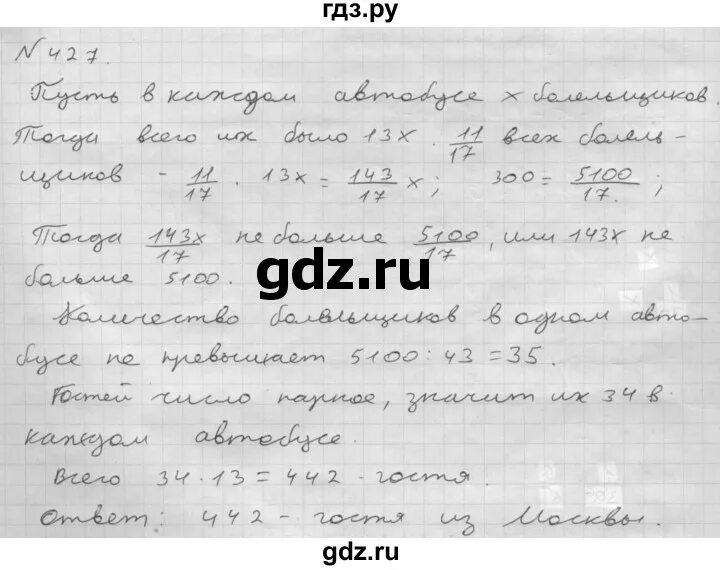 гдз.ру
N 427.
Пусть в каждом автобусе x болельщиков.
Тогда всего их было 13x. 11/17 всех болель-
щиков - 11/17 · 13x = 143/17 x; 300 = 5100/17. ;
Тогда 143x/17 не больше 5100/17, или 143x не
больше 5100.
gdz.ru
Количество болельщиков в одном авто-
бусе не превышает 5100 : 43 = 35.
Гостей число парное, значит их 34 в
каждом автобусе.
Всего 34 · 13 = 442 - гостя.
Ответ: 442 - гостя из Москвы.
gdz.ru